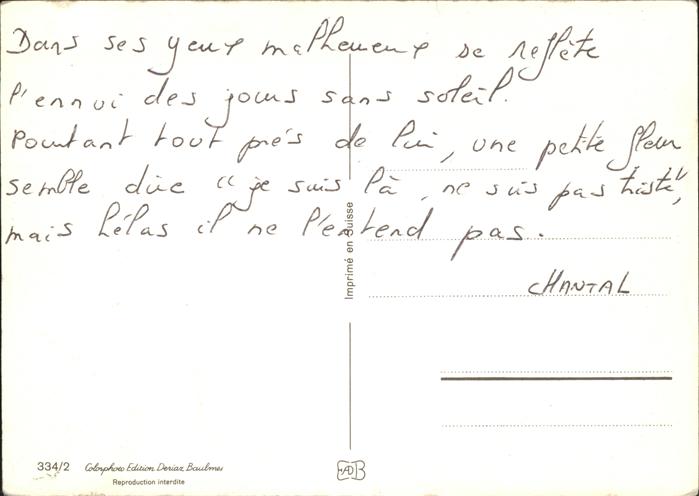 Dans ses yeux malheureux se reflète
l'ennui des jours sans soleil.
Pourtant tout près de lui, une petite fleur
semble dire "je suis là, ne sois pas triste",
mais hélas il ne l'entend pas.
CHANTAL
Imprimé en Suisse
334/2 Colorphoto Edition Deriaz Baulmes
Reproduction interdite